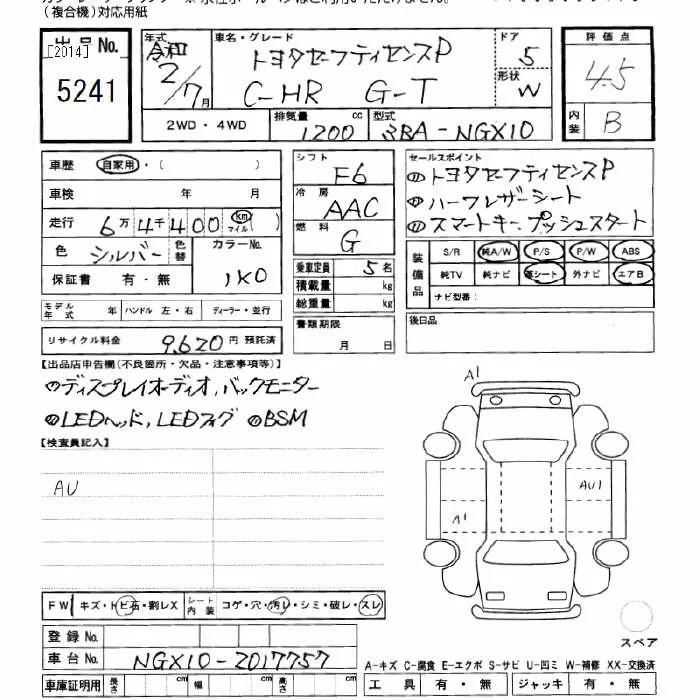 (複合機)対応用紙
出品No. 年式 車名・グレード ドア 評価点
[2014] 令和 トヨタセーフティセンスP 5 4.5
5241 2/7月 C-HR G-T 形状 W
2WD・4WD 排気量 1200 cc 型式 3BA-NGX10 内装 B
車歴 自家用・( ) シフト F6 セールスポイント
車検 年 月 冷房 AAC ①トヨタセーフティセンスP
走行 6万4千400 km マイル ( ) ②ハーフレザーシート
色 シルバー 色替 カラーNo. 1K0 燃料 G ③スマートキー.プッシュスタート
保証書 有・無 乗車定員 5名 装備品 S/R 純A/W P/S P/W ABS
積載量 kg 純TV 純ナビ 革シート 外ナビ エアB
モデル年式 年 ハンドル 左・右 ディーラー・並行 総重量 kg ナビ型番:
リサイクル料金 9,620円 預託済 書類期限 月 日 後日品
【出品店申告欄(不良箇所・欠品・注意事項等)】
ディスプレイオーディオ,バックモニター
LEDヘッド,LEDフォグ BSM
【検査員記入】
AU
A1
A1
AU1
FW キズ・トビ石・割レX シート内装 コゲ・穴・汚レ・シミ・破レ・スレ
登録No. スペア
車台No. NGX10-2017757 A-キズ C-腐食 E-エクボ S-サビ U-凹ミ W-補修 XX-交換済
車庫証明用 長さ cm 幅 cm 高さ cm 工具 有・無 ジャッキ 有・無